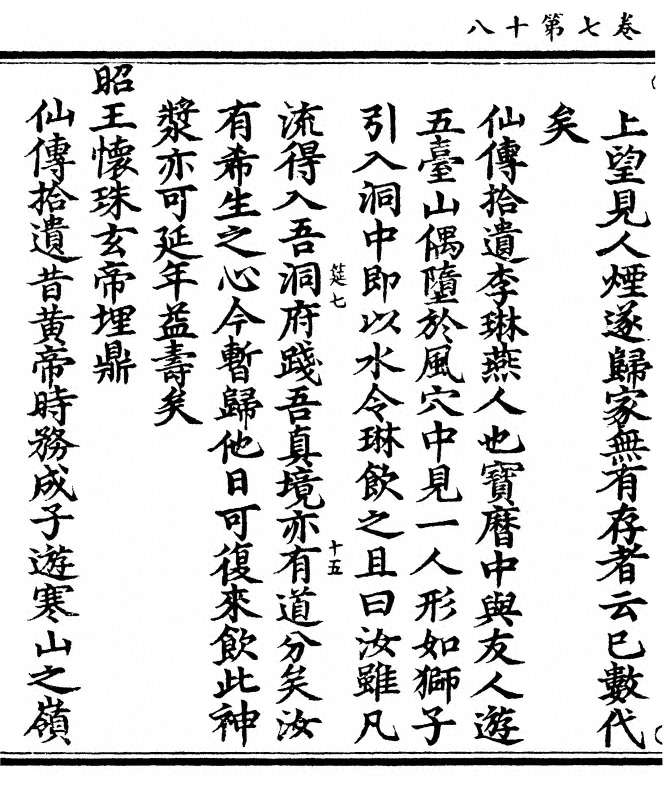 卷七第十八
上望見人煙遂歸家無有存者云已數代
矣
仙傳拾遺李琳燕人也寶曆中與友人遊
五臺山偶墮於風穴中見一人形如獅子
引入洞中即以水令琳飲之且曰汝雖凡
流得入吾洞府踐吾真境亦有道分矣汝
筵七
十五
有希生之心今暫歸他日可復來飲此神
漿亦可延年益壽矣
昭王懷珠玄帝埋鼎
仙傳拾遺昔黃帝時務成子遊寒山之嶺